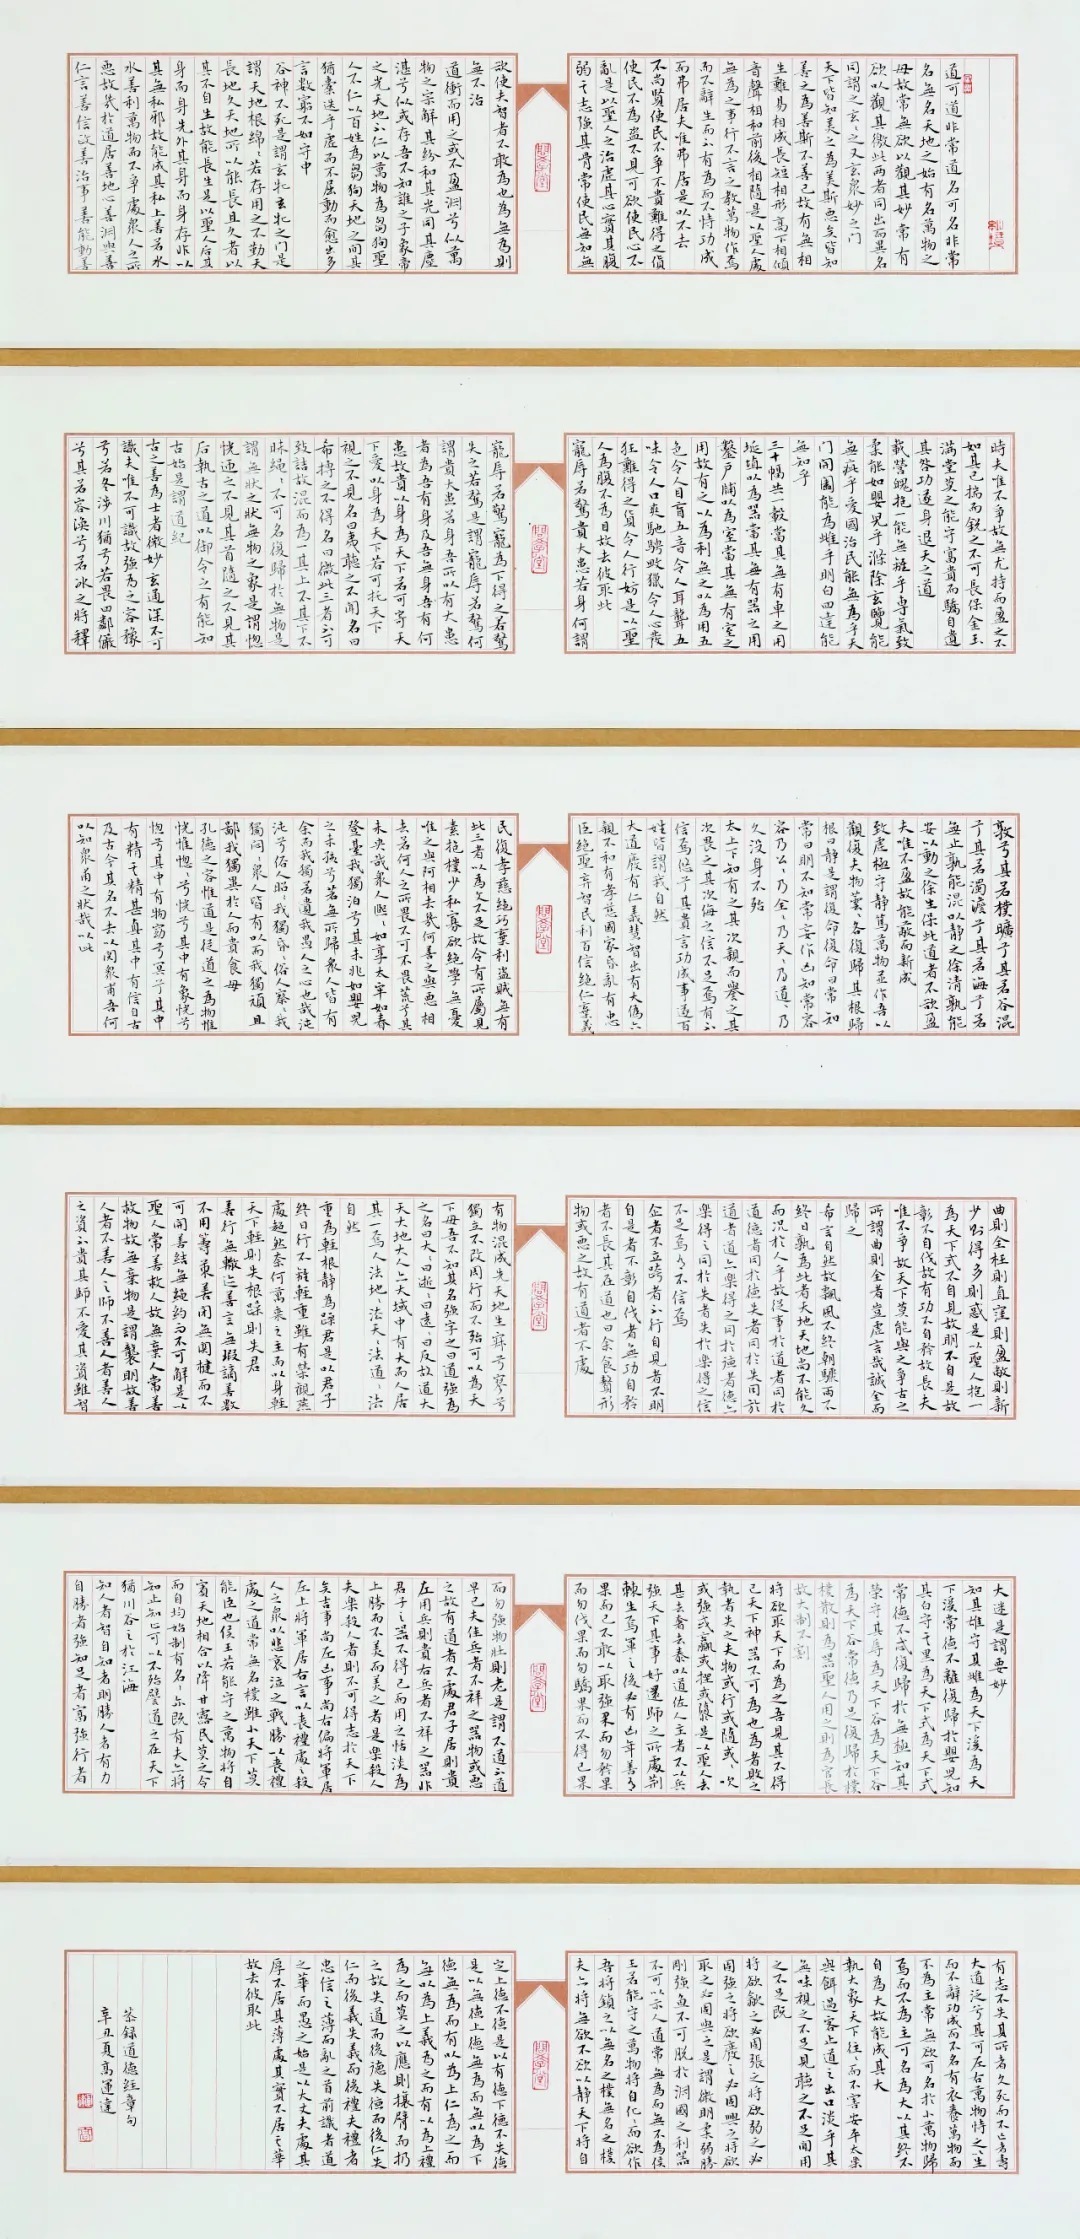 道可道非常道名可名非常
名無名天地之始有名萬物之
母故常無欲以觀其妙常有
欲以觀其徼此兩者同出而異名
同謂之玄之又玄衆妙之門
天下皆知美之為美斯惡矣皆知
善之為善斯不善已故有無相
生難易相成長短相形高下相傾
音聲相和前後相隨是以聖人處
無為之事行不言之教萬物作焉
而不辭生而不有為而不恃功成
而弗居夫唯弗居是以不去
不尚賢使民不爭不貴難得之貨
使民不為盜不見可欲使民心不
亂是以聖人之治虛其心實其腹
弱其志強其骨常使民無知無
欲使夫智者不敢為也為無為則
無不治
道衝而用之或不盈淵兮似萬
物之宗解其紛和其光同其塵
湛兮似或存吾不知誰之子象帝
之先天地不仁以萬物為芻狗聖
人不仁以百姓為芻狗天地之間其
猶橐迭乎虛而不屈動而愈出多
言數窮不如守中
谷神不死是謂玄牝玄牝之門是
謂天地根綿綿若存用之不勤天
長地久天地所以能長且久者以
其不自生故能長生是以聖人后其
身而身先外其身而身存非以
其無私邪故能成其私上善若水
水善利萬物而不爭處衆人之所
惡故幾於道居善地心善淵與善
仁言善信政善治事善能動善
時夫唯不爭故無尤持而盈之不
如其已揣而銳之不可長保金玉
滿堂莫之能守富貴而驕自遺
其咎功遂身退天之道
載營魄抱一能無離乎專氣致
柔能如嬰兒乎滌除玄覽能
無疵乎愛國治民能無為乎天
門開闔能為雌乎明白四達能
無知乎
三十幅共一轂當其無有車之用
埏埴以為器當其無有器之用
鑿戶牖以為室當其無有室之
用故有之以為利無之以為用五
色令人目盲五音令人耳聾五
味令人口爽馳騁畋獵令人心發
狂難得之貨令人行妨是以聖
人為腹不為目故去彼取此
寵辱若驚貴大患若身何謂
寵辱若驚寵為下得之若驚
失之若驚是謂寵辱若驚何
謂貴大患若身吾所以有大患
者為吾有身及吾無身吾有何
患故貴以身為天下若可寄天
下愛以身為天下若可托天下
視之不見名曰夷聽之不聞名曰
希摶之不得名曰微此三者不可
致詰故混而為一其上不其下不
昧繩繩不可名復歸於無物是
謂無狀之狀無物之象是謂惚
恍迎之不見其首隨之不見其
后執古之道以御今之有能知
古始是謂道紀
古之善為士者微妙玄通深不可
識夫唯不可識故強為之容豫
兮若冬涉川猶兮若畏四鄰儼
兮其若容渙兮若冰之將釋
敦兮其若樸曠兮其若谷混
兮其若濁澹兮其若海兮若
無止孰能混以靜之徐清孰能
安以動之徐生保此道者不欲盈
夫唯不盈故能敝而新成
致虛極守靜篤萬物並作吾以
觀復夫物蕓蕓各復歸其根歸
根曰靜是謂復命復命曰常知
常曰明不知常妄作凶知常容
容乃公公乃全全乃天天乃道道乃
久沒身不殆
太上下知有之其次親而譽之其
次畏之其次侮之信不足焉有不
信焉悠兮其貴言功成事遂百
姓皆謂我自然
大道廢有仁義慧智出有大偽六
親不和有孝慈國家昏亂有忠
臣絕聖棄智民利百倍絕仁棄義
民復孝慈絕巧棄利盜賊無有
此三者以為文不足故令有所屬見
素抱樸少私寡欲絕學無憂
唯之與阿相去幾何善之與惡相
去若何人之所畏不可不畏荒兮其
未央哉衆人熙熙如享太牢如春
登臺我獨泊兮其未兆如嬰兒
之未孩兮若無所歸衆人皆有
余而我獨若遺我愚人之心也哉沌
沌兮俗人昭昭我獨昏昏俗人察察我
獨悶悶衆人皆有以而我獨頑且
鄙我獨異於人而貴食母
孔德之容惟道是從道之為物惟
恍惟惚惚兮恍兮其中有象恍兮
惚兮其中有物窈兮冥兮其中
有精其精甚真其中有信自古
及古今其名不去以閱衆甫吾何
以知衆甫之狀哉以此
曲則全枉則直窪則盈敝則新
少則得多則惑是以聖人抱一
為天下式不自見故明不自是故
彰不自伐故有功不自矜故長夫
唯不爭故天下莫能與之爭古之
所謂曲則全者豈虛言哉誠全而
歸之
希言自然故飄風不終朝驟雨不
終日孰為此者天地天地尚不能久
而況於人乎故從事於道者同於
道德者同於德失者同於失同於
道者道亦樂得之同於德者德亦
樂得之同於失者失於樂得之信
不足焉有不信焉
企者不立跨者不行自見者不明
自是者不彰自伐者無功自矜
者不長其在道也曰余食贅形
物或惡之故有道者不處
有物混成先天地生寂兮寥兮
獨立不改周行而不殆可以為天
下母吾不知其名強字之曰道強為
之名曰大大曰逝逝曰遠遠曰反故道大
天大地大人亦大域中有大而人居
其一焉人法地地法天天法道道法
自然
重為輕根靜為躁君是以君子
終日行不離輕重雖有榮觀燕
處超然奈何萬乘之主而以身輕
天下輕則失根躁則失君
善行無轍跡善言無瑕謫善數
不用籌策善閉無關楗而不
可開善結無繩約而不可解是以
聖人常善救人故無棄人常善
故物故無棄物是謂襲明故善
人者不善人之師不善人者善人
之資不貴其師不愛其資雖智
大迷是謂要妙
知其雄守其雌為天下溪為天
下溪常德不離復歸於嬰兒知
其白守其黑為天下式為天下式
常德不忒復歸於無極知其
榮守其辱為天下谷為天下谷
為天下谷常德乃足復歸於樸
樸散則為器聖人用之則為官長
故大制不割
將欲取天下而為之吾見其不得
已天下神器不可為也為者敗之
執者失之夫物或行或隨或噓或吹
或強或羸或挫或隳是以聖人去
甚去奢去泰以道佐人主者不以兵
強天下其事好還歸之所處荊
棘生焉軍之後必有凶年善有
果而已不敢以取強果而勿矜果
而勿伐果而勿驕果而不得已果
而勿強物壯則老是謂不道不道
早已夫佳兵者不祥之器物或惡
之故有道者不處君子居則貴
左用兵則貴右兵者不祥之器非
君子之器不得已而用之恬淡為
上勝而不美而美之者是樂殺人
夫樂殺人者則不可得志於天下
矣吉事尚左凶事尚右偏將軍居
左上將軍居右言以喪禮處之殺
人之衆以悲哀泣之戰勝以喪禮
處之道常無名樸雖小天下莫
能臣也侯王若能守之萬物將自
賓天地相合以降甘露民莫之令
而自均始制有名名亦既有夫亦將
知止知止可以不殆譬道之在天下
猶川谷之於江海
知人者智自知者明勝人者有力
自勝者強知足者富強行者
有志不失其所者久死而不亡者壽
大道泛兮其可左右萬物恃之以生
而不辭功成而不名有衣養萬物而
不為主常無欲可名於小萬物歸
焉而不為主可名為大以其終不
自為大故能成其大
執大象天下往往而不害安平太樂
與餌過客止道之出口淡乎其
無味視之不足見聽之不足聞用
之不足既
將欲歙之必固張之將欲弱之必
固強之將欲廢之必固興之將欲
取之必固與之是謂微明柔弱勝
剛強魚不可脫於淵國之利器
不可以示人道常無為而無不為侯
王若能守之萬物將自化化而欲作
吾將鎮之以無名之樸無名之樸
夫亦將無欲不欲以靜天下將自
定上德不德是以有德下德不失德
是以無德上德無為而無以為下
德無為而有以為上仁為之而
無以為上義為之而有以為上禮
為之而莫之以應則攘臂而扔
之故失道而後德失德而後仁失
仁而後義失義而後禮夫禮者
忠信之薄而亂之首前識者道
之華而愚之始是以大丈夫處其
厚不居其薄處其實不居其華
故去彼取此
恭錄道德經章句
辛丑夏高運達